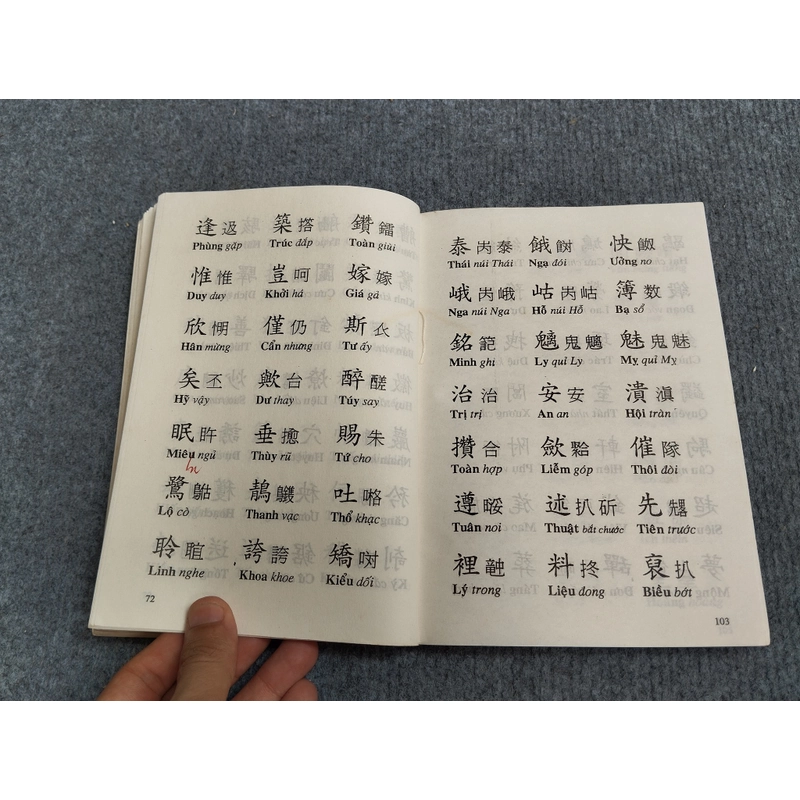 逢 築 鑽
Phùng gặp Trúc đắp Toàn giùi
惟 惟 豈 呵 嫁 嫁
Duy duy Khởi há Giá gả
欣 僅 仍 斯
Hân mừng Cẩn nhưng Tư ấy
矣 丕 歟 台 醉 醝
Hỹ vậy Dư thay Túy say
眠 垂 賜 朱
Miêu ngủ Thùy rũ Tứ cho
hi
鷺 鶄 吐 咯
Lộ cò Thanh vạc Thổ khạc
聆 誇 誇 矯
Linh nghe Khoa khoe Kiểu dối
72
泰 餓 快
Thái núi Thái Ngạ đói Ưỡng no
峨 岵 簿 数
Nga núi Nga Hỗ núi Hỗ Bạ sổ
銘 魑 鬼 魑 魅 鬼 魅
Minh ghi Ly quỉ Ly Mỵ quỉ Mỵ
治 治 安 安 潰 滇
Trị trị An an Hội tràn
攢 合 斂 催 隊
Toàn hợp Liễm góp Thôi đòi
遵 述 扒 斫 先
Tuân noi Thuật bắt chước Tiên trước
裡 料 裒 扒
Lý trong Liệu đong Biều bớt
103